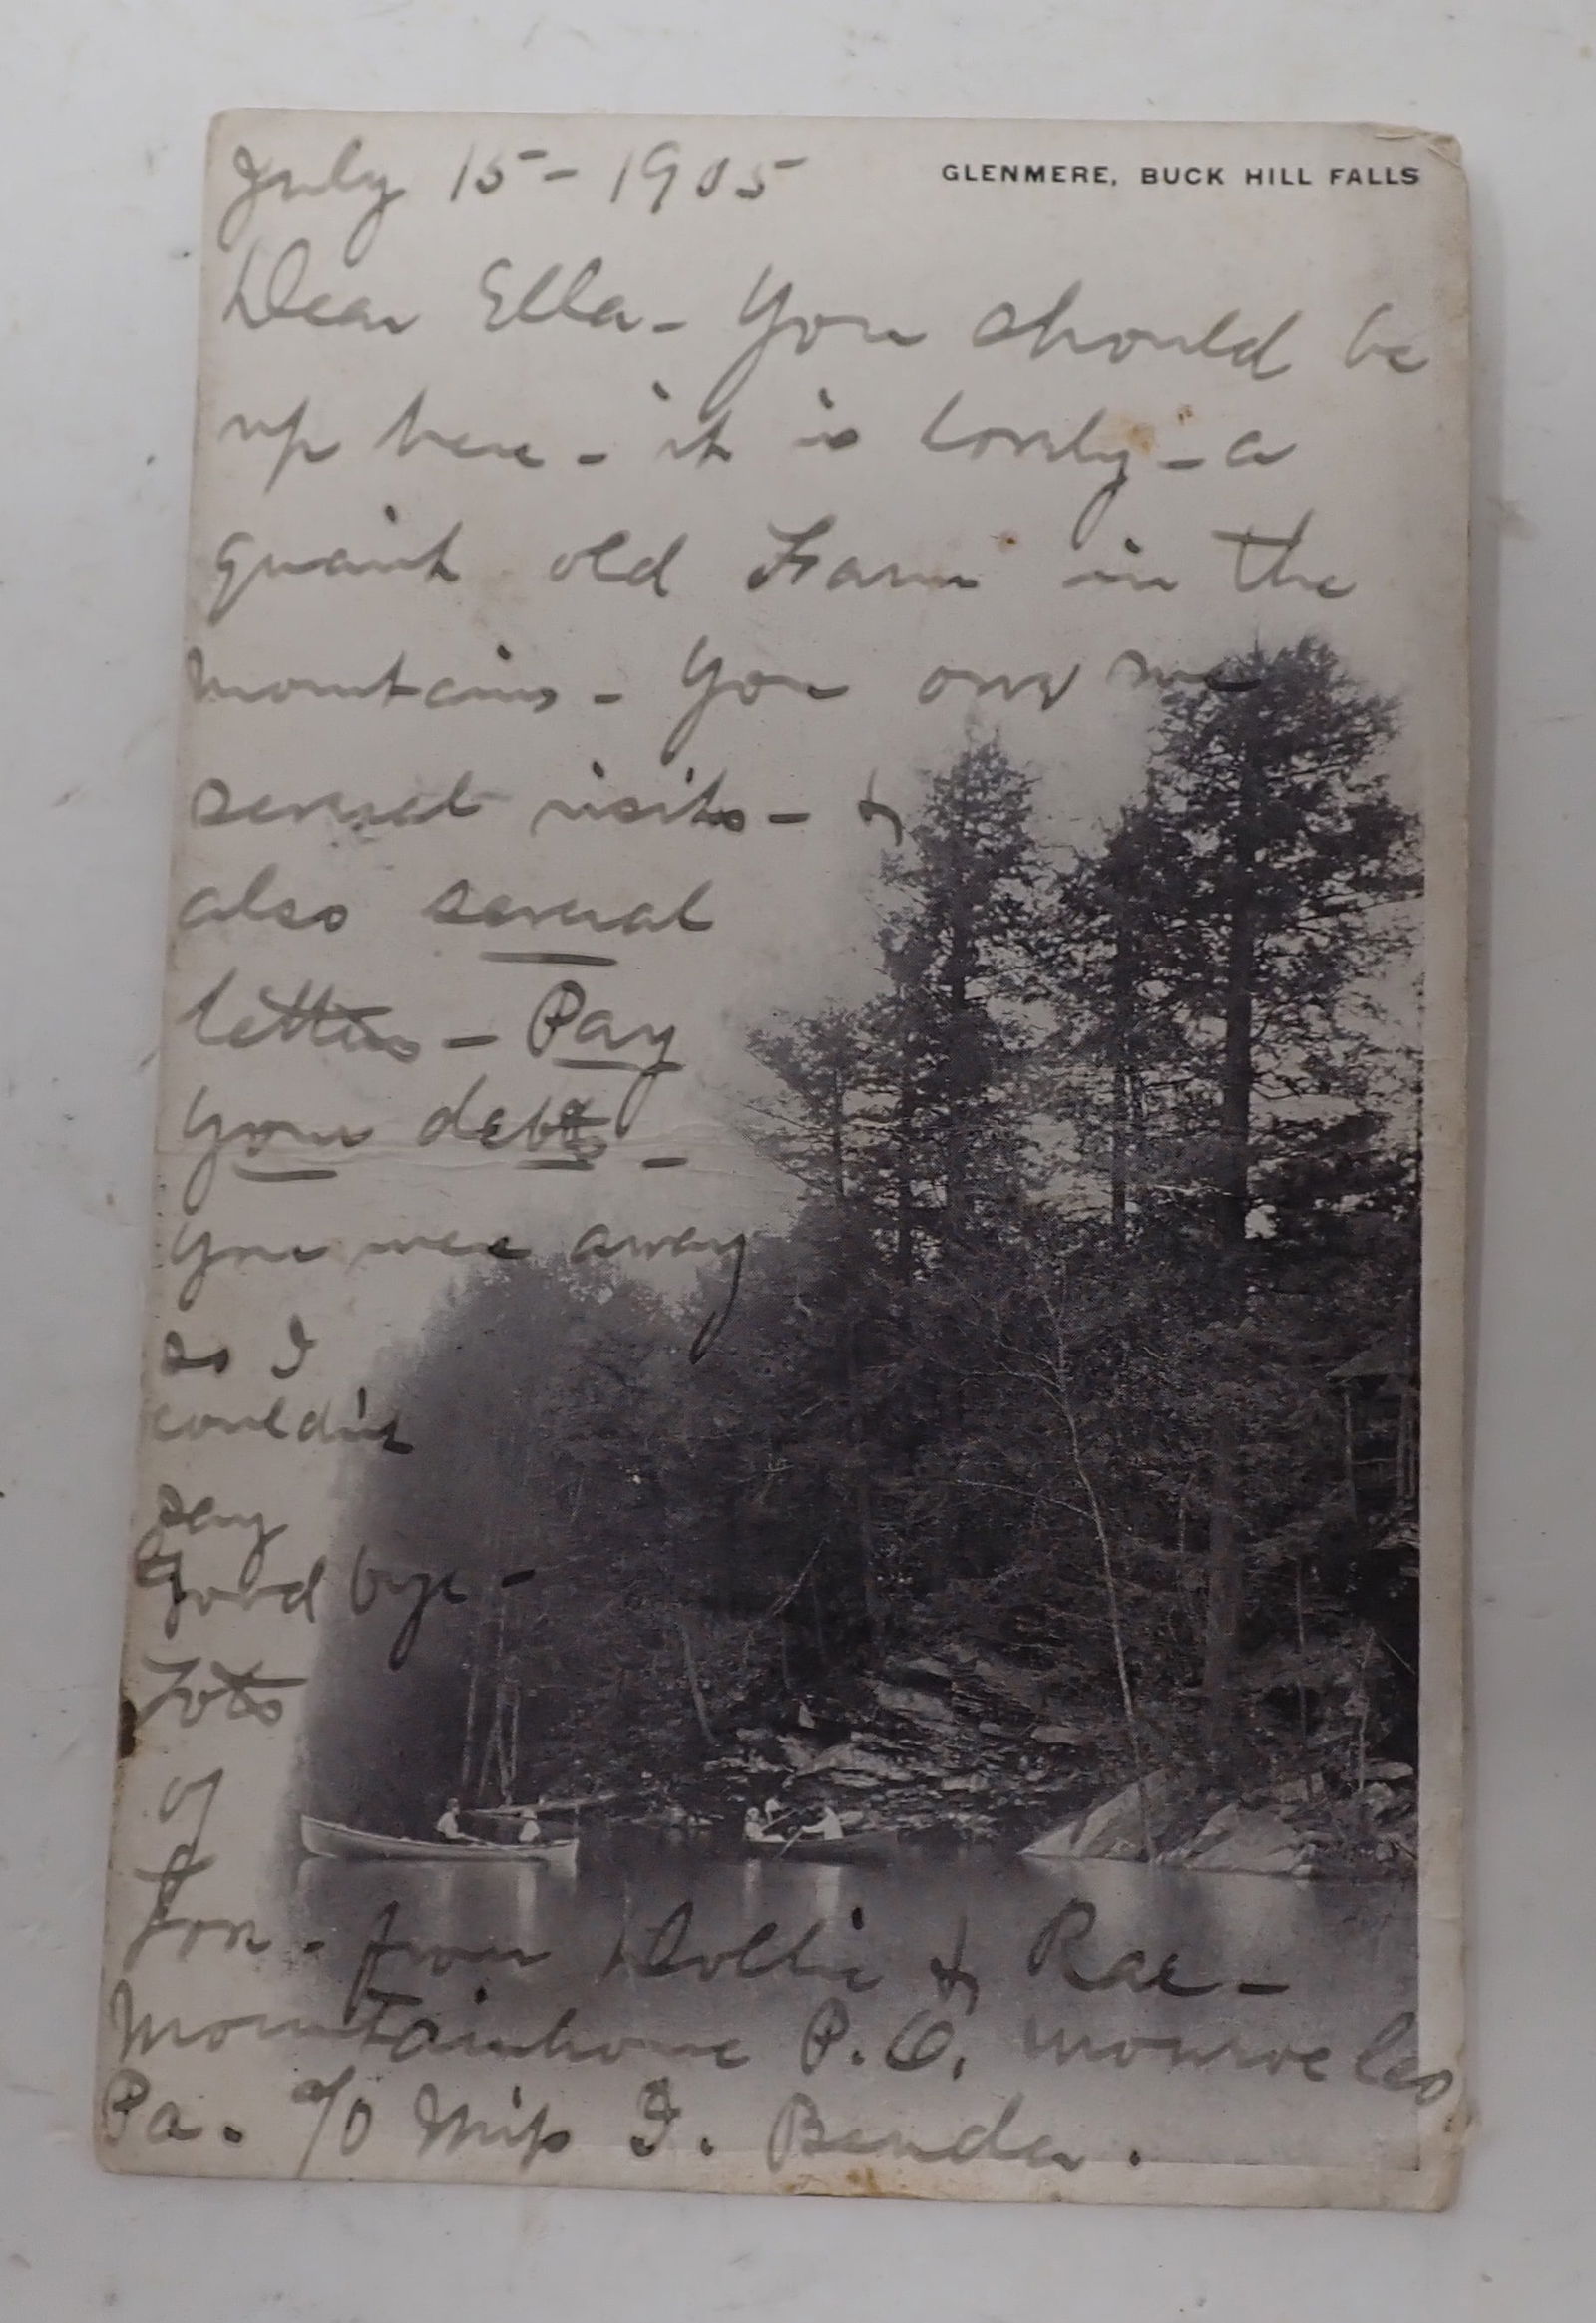 July 15 - 1905
GLENMERE, BUCK HILL FALLS
Dear Ella - You should be
up here - it is lovely - a
quaint old Farm in the
mountains - You owe me
several visits - &
also several
letters - Pay
your debts -
you were away
so I
couldn't
say
Good bye -
Lots
of
Love - from Dollie & Rae -
Mountainhome P.O. Monroe Co
Pa. c/o Miss I. Bender.